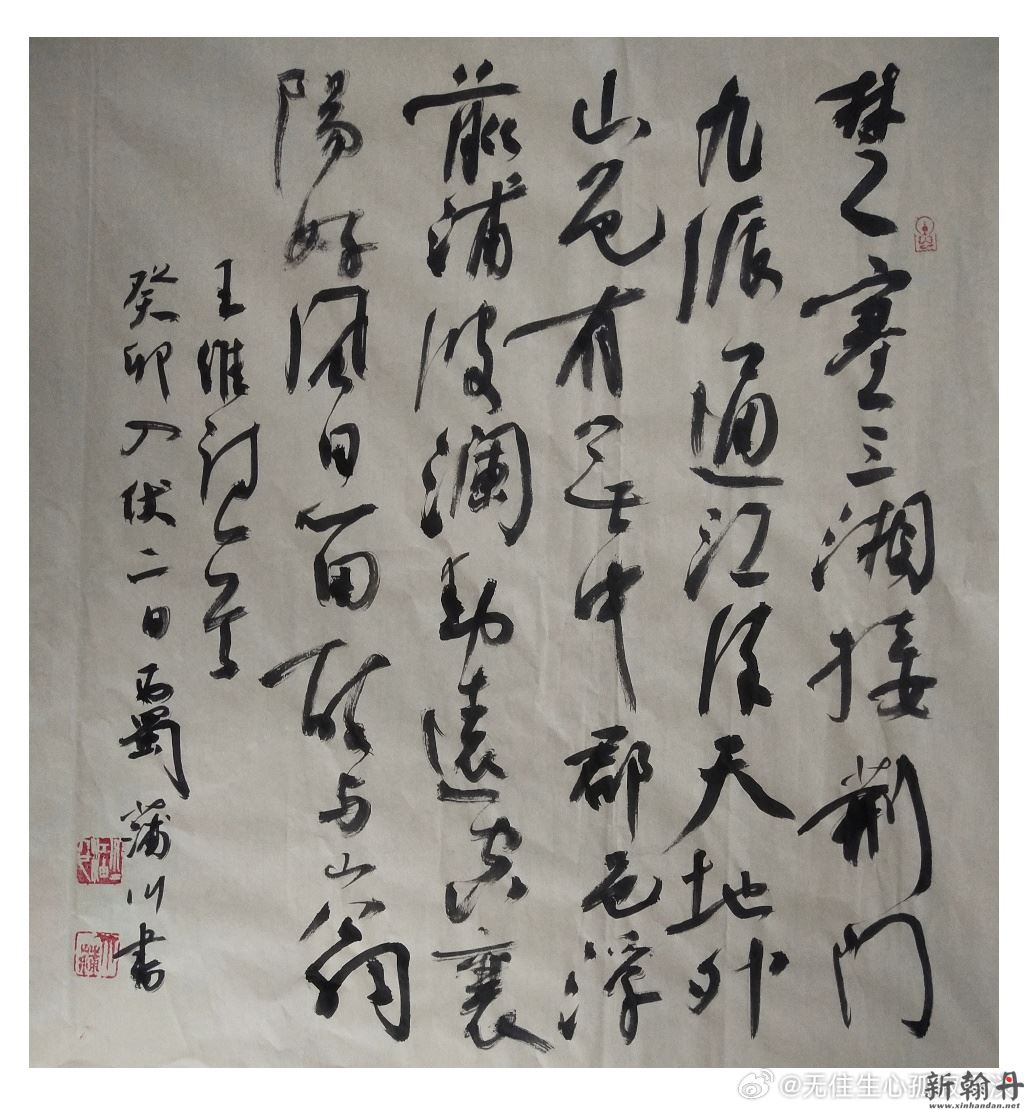 楚塞三湘接荊門
九派通江流天地外
山色有無中郡邑浮
前浦波瀾動遠空襄
陽好風日留醉与山翁
王維詩一首
癸卯入伏二日西蜀蒲川書
@无住生心孤
新翰丹
www.xinhandan.net